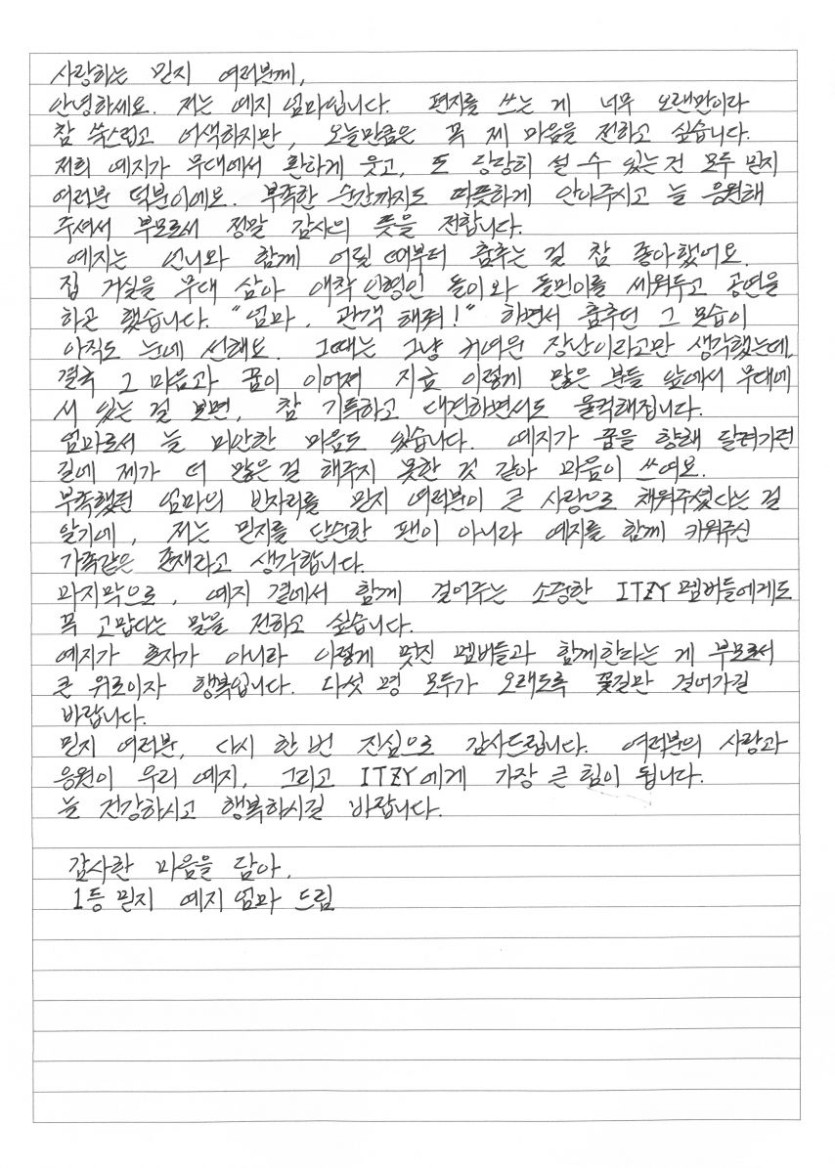 사랑하는 믿지 여러분께,
안녕하세요. 저는 예지 엄마입니다. 편지를 쓰는 게 너무 오랜만이라
참 쑥스럽고 어색하지만, 오늘만큼은 꼭 제 마음을 전하고 싶습니다.
저희 예지가 무대에서 환하게 웃고, 또 당당히 설 수 있는 건 모두 믿지
여러분 덕분이에요. 부족한 순간까지도 따뜻하게 안아주시고 늘 응원해
주셔서 부모로서 정말 감사의 뜻을 전합니다.
예지는 언니와 함께 어릴 때부터 춤추는 걸 참 좋아했어요.
집 거실을 무대 삼아 애착인형인 돌이와 돌민이를 세워두고 공연을
하곤 했습니다. "엄마, 관객 해줘!" 하면서 춤추던 그 모습이
아직도 눈에 선해요. 그때는 그냥 귀여운 장난이라고만 생각했는데,
결국 그 마음과 꿈이 이어져 지금 이렇게 많은 분들 앞에서 무대에
서 있는 걸 보면, 참 기특하고 대견하면서도 울컥해집니다.
엄마로서 늘 미안한 마음도 있습니다. 예지가 꿈을 향해 달려가던
길에 제가 더 많은 걸 해주지 못한 것 같아 마음이 쓰여요.
부족했던 엄마의 빈자리를 믿지 여러분이 큰 사랑으로 채워주셨다는 걸
알기에, 저는 믿지를 단순한 팬이 아니라 예지를 함께 키워주신
가족같은 존재라고 생각합니다.
마지막으로, 예지 곁에서 함께 걸어주는 소중한 ITZY 멤버들에게도
꼭 고맙다는 말을 전하고 싶습니다.
예지가 혼자가 아니라 이렇게 멋진 멤버들과 함께한다는 게 부모로서
큰 위로이자 행복입니다. 다섯 명 모두가 오래도록 꽃길만 걸어가길
바랍니다.
믿지 여러분, 다시 한번 진심으로 감사드립니다. 여러분의 사랑과
응원이 우리 예지, 그리고 ITZY에게 가장 큰 힘이 됩니다.
늘 건강하시고 행복하시길 바랍니다.
감사한 마음을 담아,
1등 믿지 예지 엄마 드림